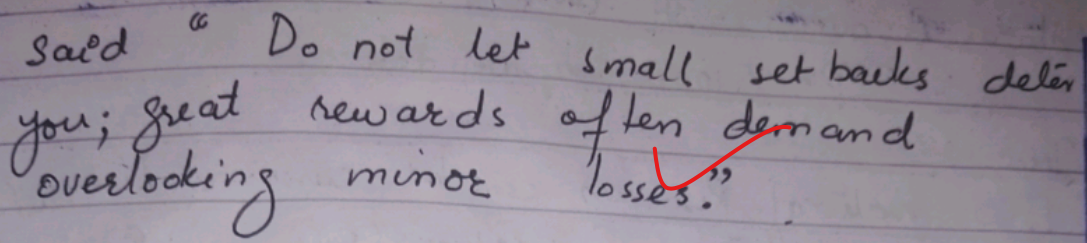 said " Do not let small set backs deter
you; great rewards often demand
overlooking minor losses."